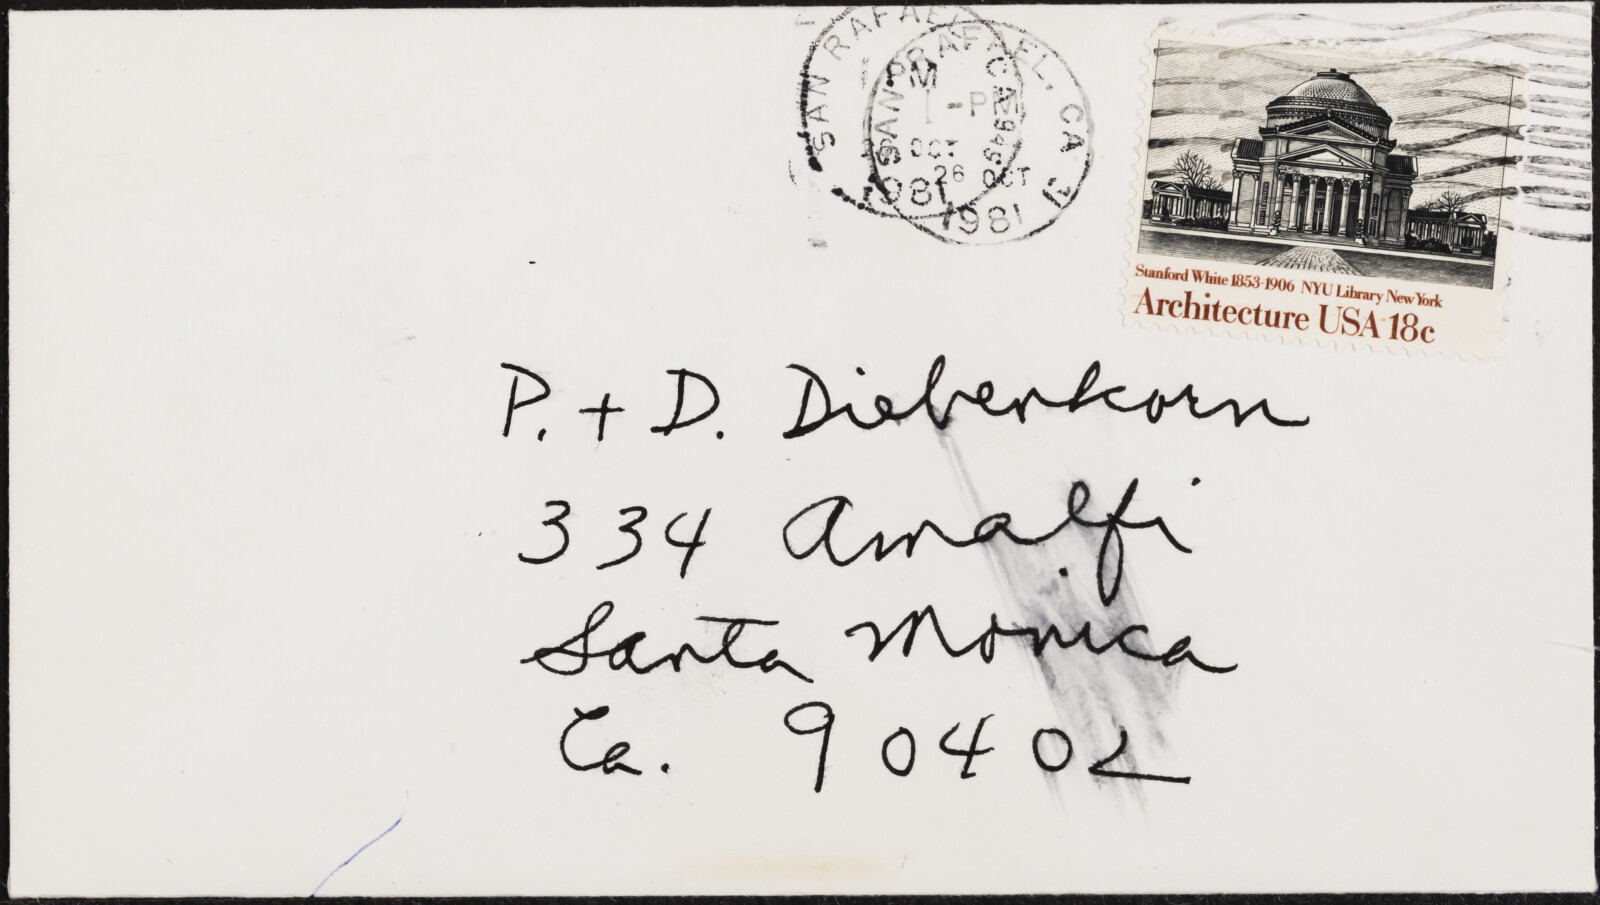 SAN RAFAEL, CA 949
1 PM
26 OCT
1981
SAN RAFAEL, CA 31
1-PM
26 OCT
1981
Stanford White 1853-1906 NYU Library New York
Architecture USA 18c
P. + D. Diebenkorn
334 Amalfi
Santa Monica
Ca. 90402